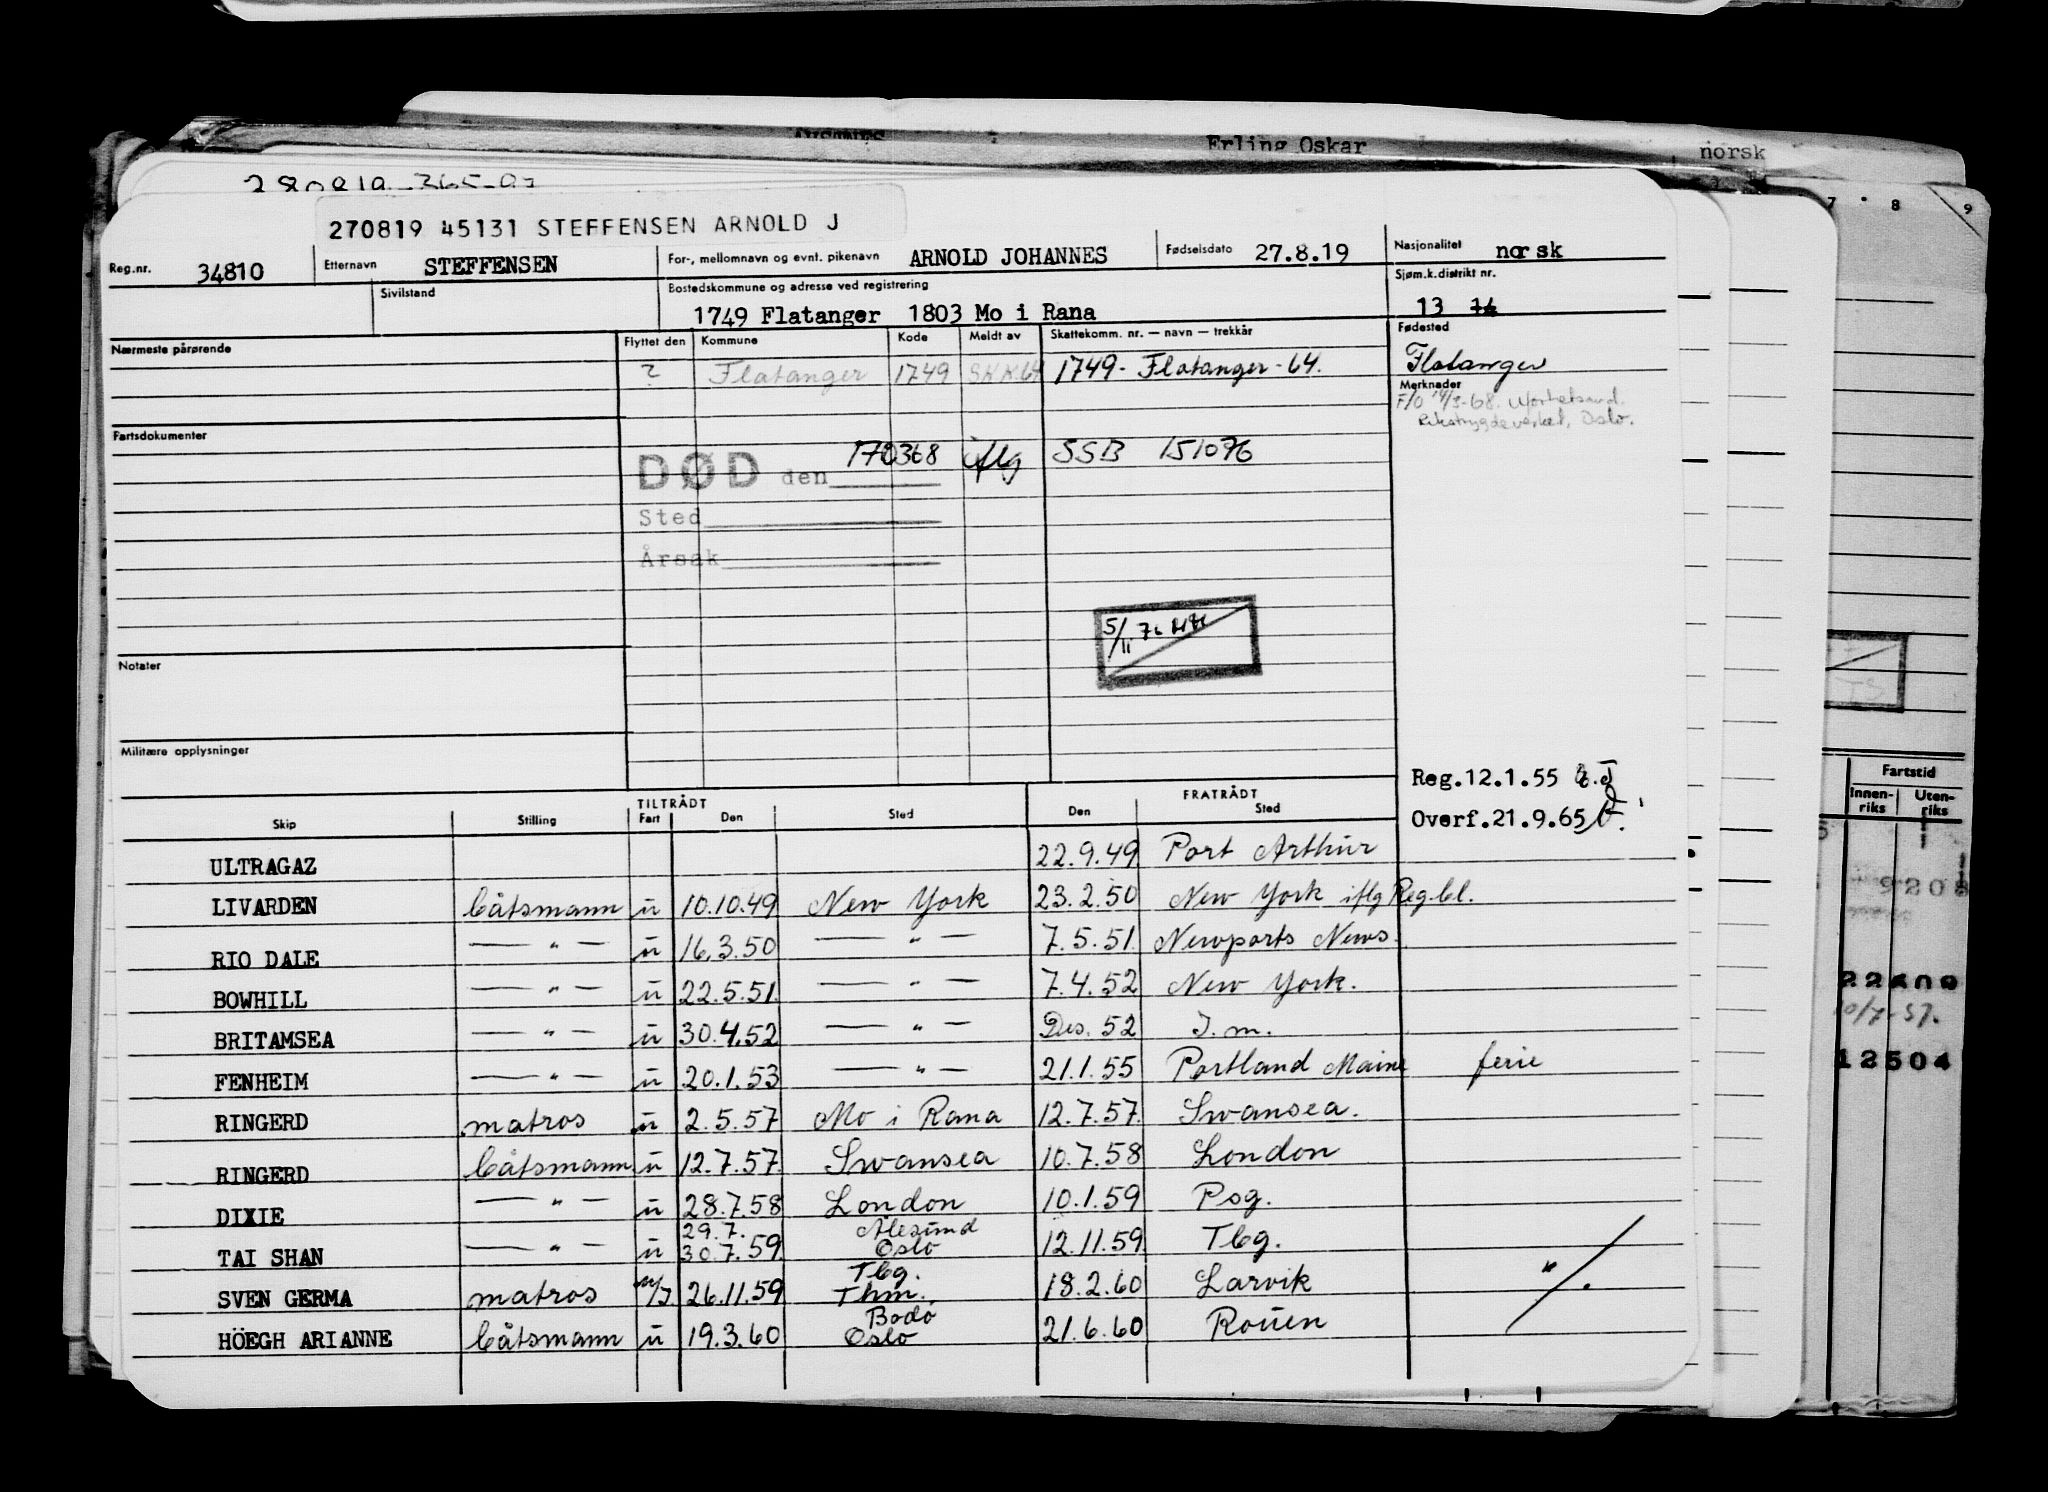 AVSANNES
Erling Oskar
norsk
280819 365-97
7 8 9
270819 45131 STEFFENSEN ARNOLD J
Reg.nr. 34810 Etternavn STEFFENSEN For-, mellomnavn og evnt. pikenavn ARNOLD JOHANNES Fødselsdato 27.8.19 Nasjonalitet norsk
Sivilstand Bostedskommune og adresse ved registrering Sjøm.k.distrikt nr.
1749 Flatanger 1803 Mo i Rana 13 14
Nærmeste pårørende Flyttet den Kommune Kode Meldt av Skattekomm. nr. — navn — trekkår Fødested
? Flatanger 1749 SKK.64 1749- Flatanger -64. Flatanger
Merknader
F/O 14/3-68. Uførhetsavd.
Rikstrygdeverket, Oslo.
Fartsdokumenter
DØD den 170368 iflg SSB 151076
Sted
Årsak
5/11 76
Notater
Militære opplysninger
Reg.12.1.55
Overf.21.9.65
TILTRÅDT FRATRÅDT
Skip Stilling Fart Den Sted Den Sted
ULTRAGAZ 22.9.49 Port Arthur
LIVARDEN båtsmann u 10.10.49 New York 23.2.50 New York iflg Reg.bl.
RIO DALE — " — u 16.3.50 — " — 7.5.51. Newports News.
BOWHILL — " — u 22.5.51. — " — 7.4.52 New York.
BRITAMSEA — " — u 30.4.52 — " — Des. 52 I.m.
FENHEIM — " — u 20.1.53 — " — 21.1.55 Portland Maine ferie
RINGERD matros u 2.5.57 Mo i Rana 12.7.57. Swansea.
RINGERD båtsmann u 12.7.57. Swansea 10.7.58 London
DIXIE — " — u 28.7.58 London 10.1.59 Psg.
TAI SHAN — " — u 29.7. 30.7.59 Ålesund Oslo 12.11.59 Tbg.
SVEN GERMA matros 26.11.59 Tbg. Thm. 18.2.60 Larvik "/.
HÖEGH ARIANNE båtsmann u 19.3.60 Bodø Oslo 21.6.60 Rouen
Fartstid
Innen-riks Uten-riks
9208
22609
10/7-57.
12504